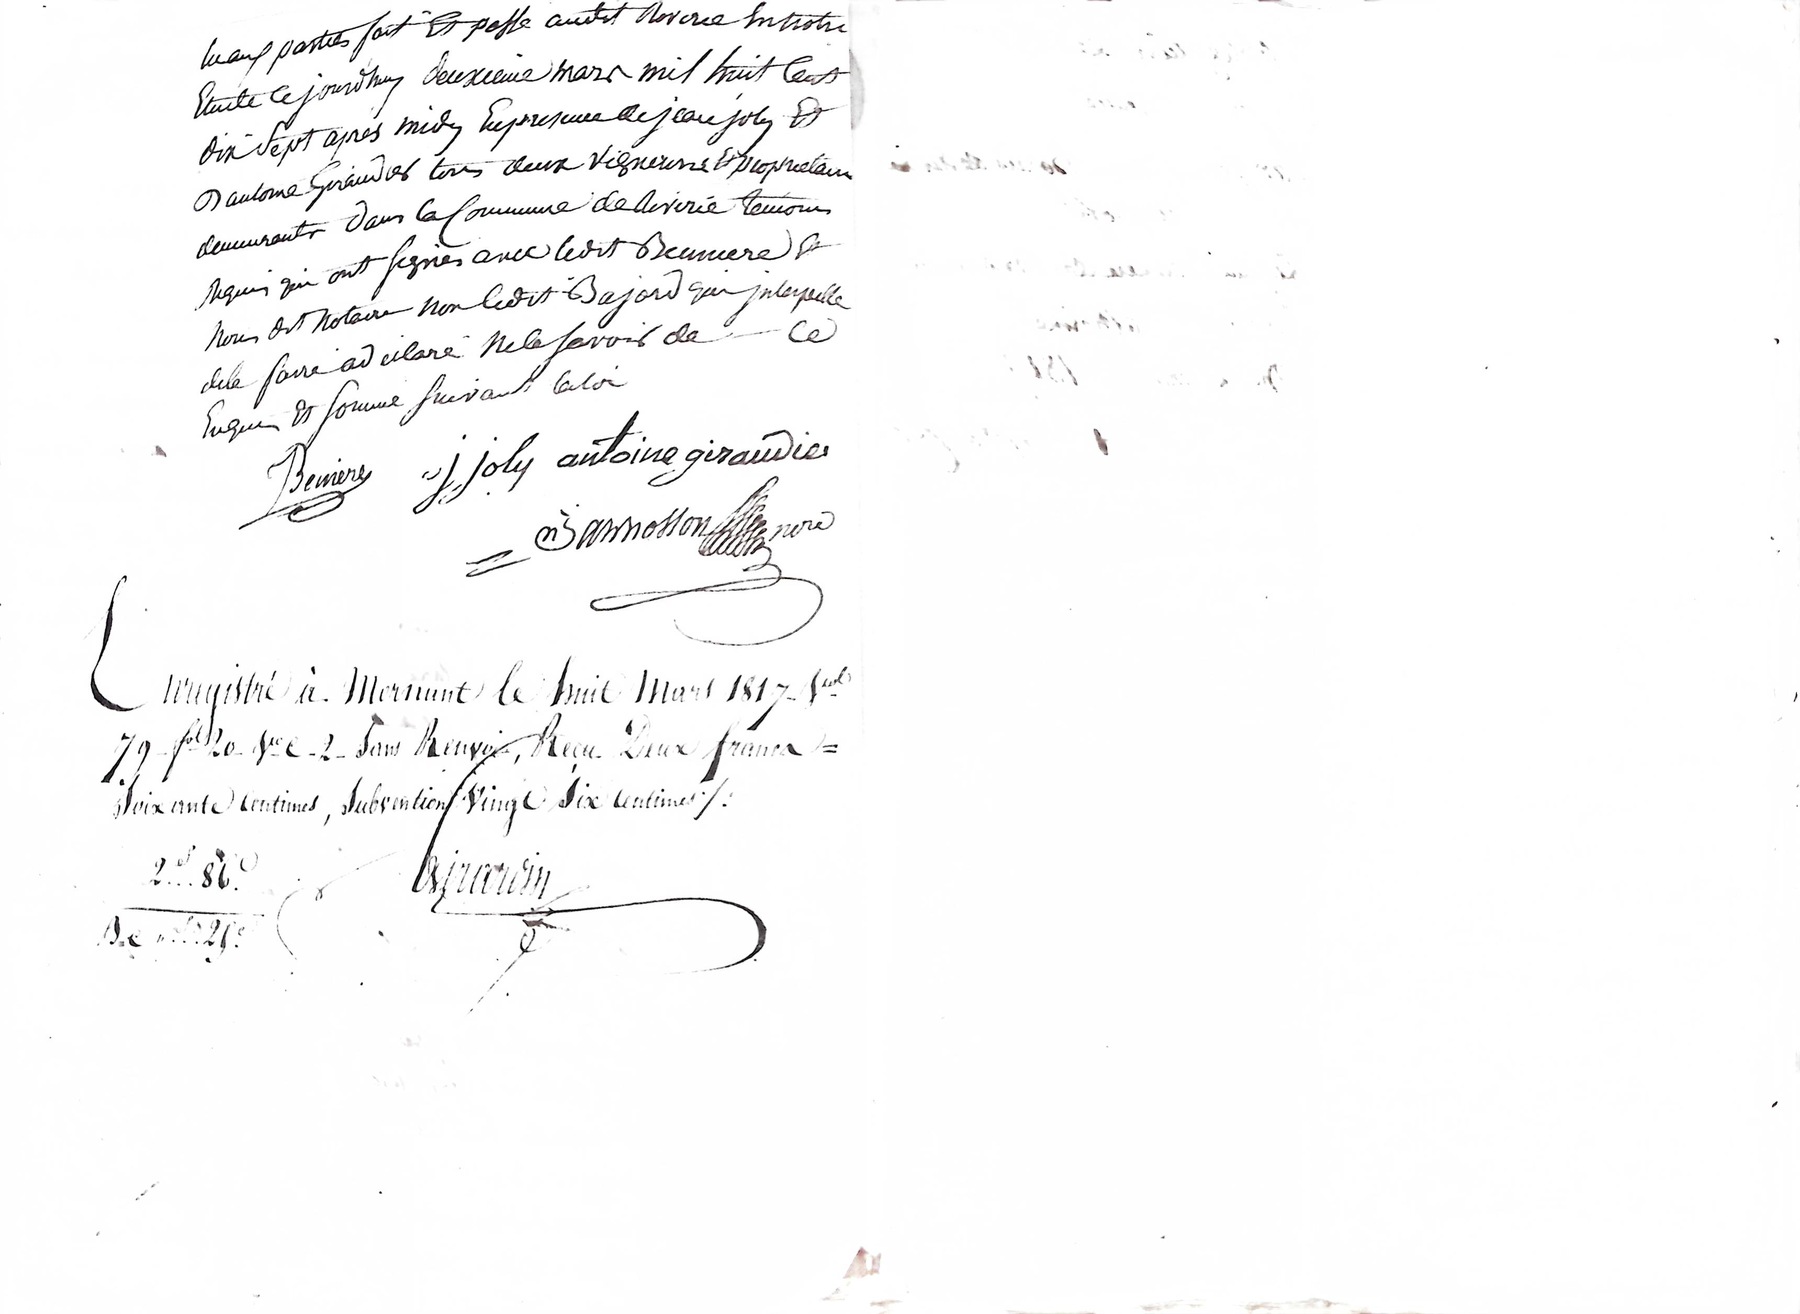 parties fait Et passé audit Riverie En notre
Etude Ce jourdhuy deuxieme mars mil huit Cent
dix Sept apres midy En presence de jean joly Et
D'antoine Giraudier tous deux vignerons Et proprietaires
demeurants dans la Commune de Riverie temoins
Requis qui ont signés avec ledit Beuniere Et
Nous dit Notaire non ledit Bajard qui jnterpellé
de le faire a declaré Ne le savoir de Ce
Enquis Et sommé suivant la loi
j joly antoine giraudier
nre
Enregistré à Mornant le huit Mars 1817 Vol
79 fol 20 Vo C 2 Sans Renvoi, Reçu Deux francs =
Soixante Centimes, Subvention Vingt Six Centimes /:
2f.. 86c.
Girardin